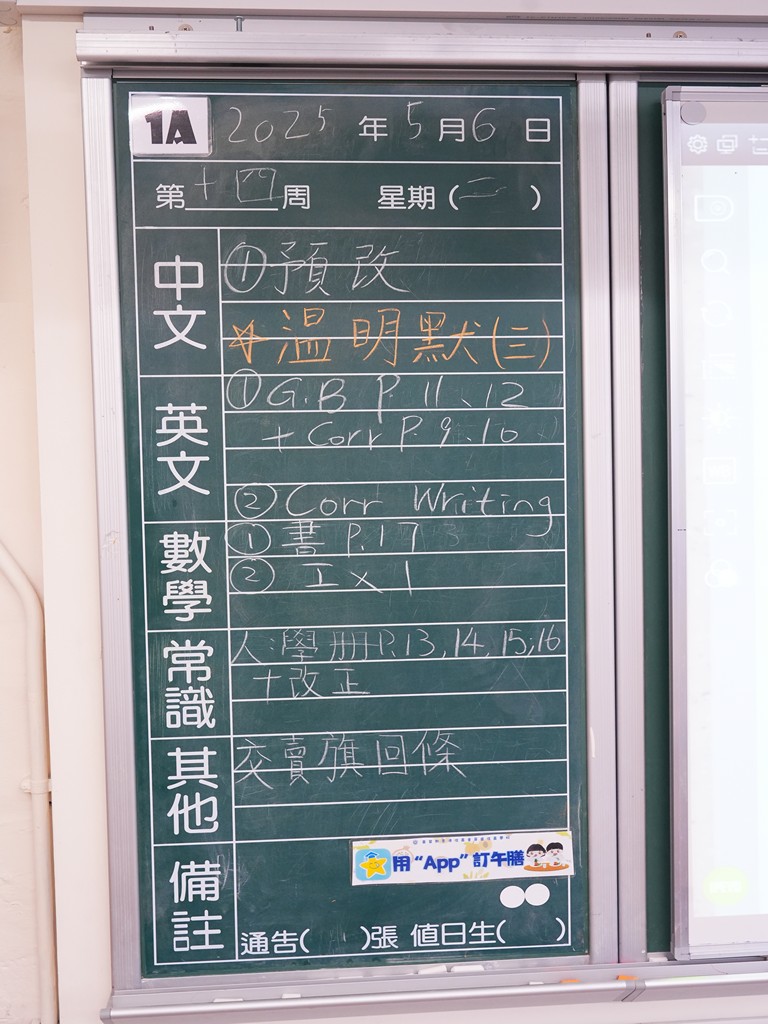 1A 2025年5月6日
第十四周 星期(二)
中文
①預改
☆溫明默(三)
英文
①G.B P.11、12
+ Corr P.9、10
② Corr Writing
數學
① 書 P.17
② 工x1
常識
人:學册P.13,14,15,16
+改正
其他
交賣旗回條
備註
用“App”訂午膳
通告( )張 值日生( )